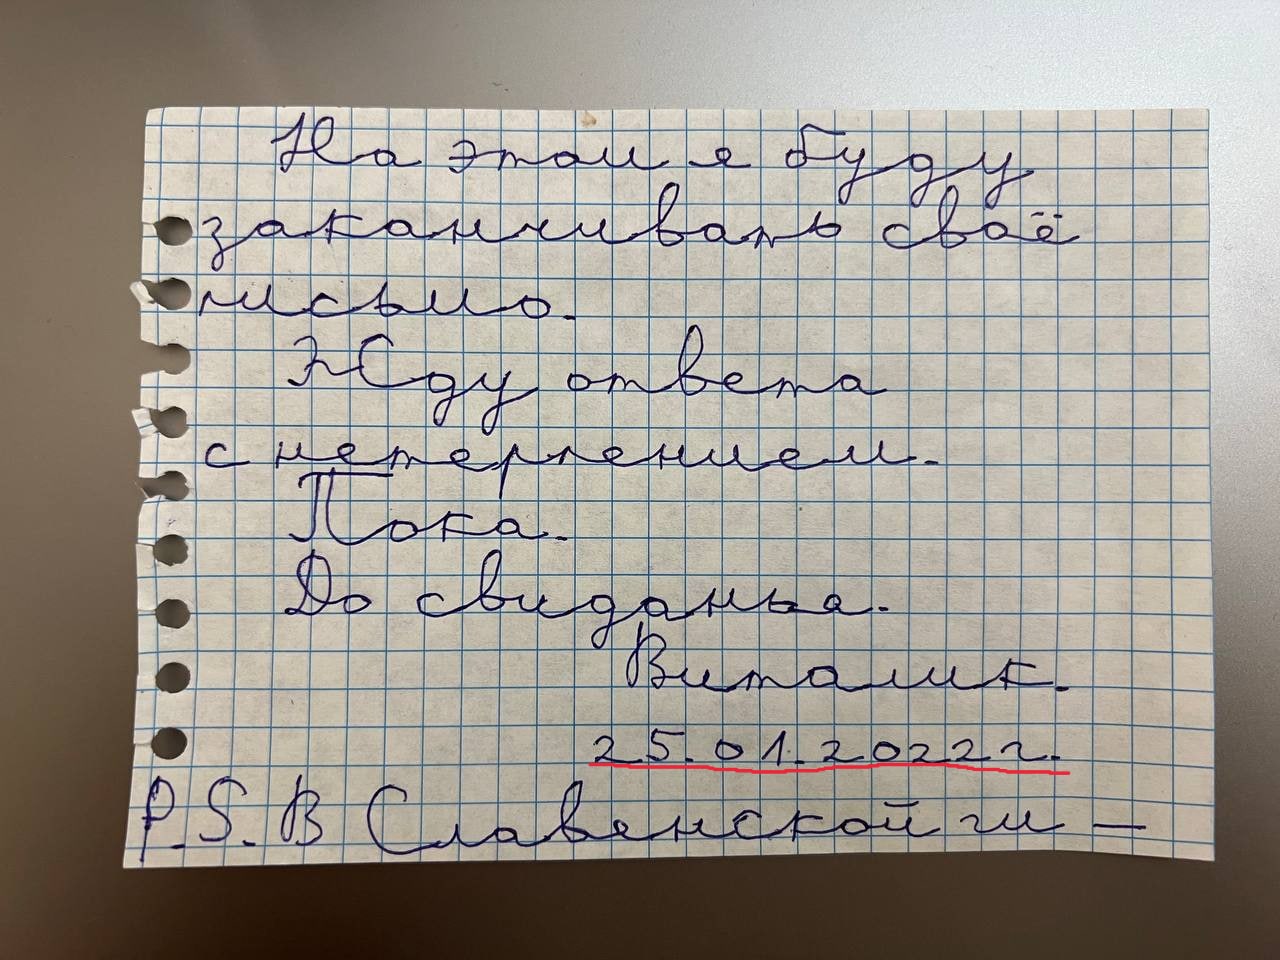 На этом я буду
заканчивать своё
письмо.
Жду ответа
с нетерпением.
Пока.
До свиданья.
Виталик.
25.01.2022г.
P.S. В Славянской ги-